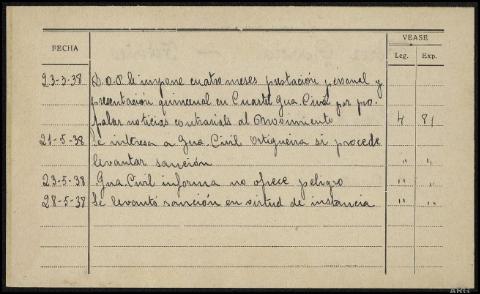 VEASE
FECHA
Leg. Exp.
23-3-38 D.O.P. le impone cuatro meses prestación personal y
presentación quincenal en Cuartel Gua. Civil por pro-
palar noticias contrarias al Movimiento 4 81
21-5-38 Se interesa a Gua. Civil Ortigueira si procede
levantar sanción " "
23-5-38 Gua. Civil informa no ofece peligro " "
28-5-38 Se levantó sanción en virtud de instancia " "